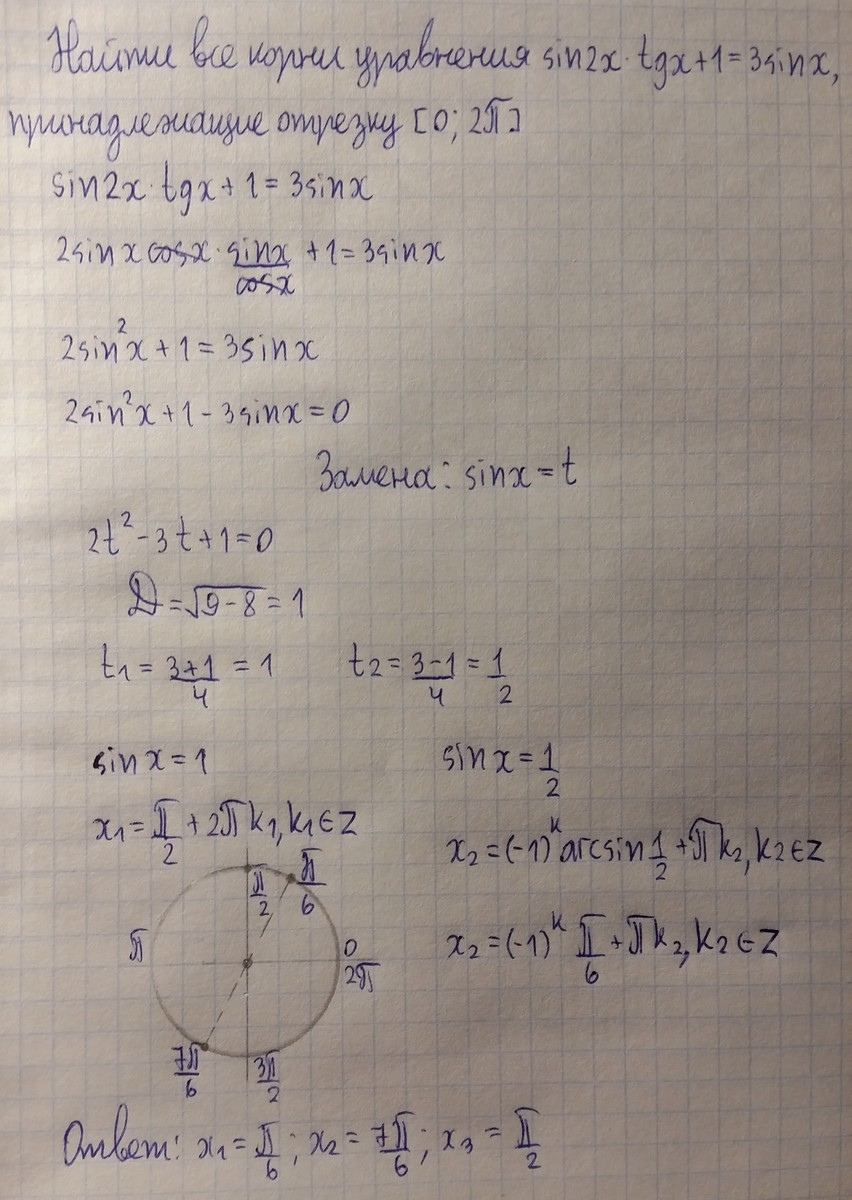 Найти все корни уравнения sin2x · tgx + 1 = 3sinx,
принадлежащие отрезку [0; 2π]
sin2x · tgx + 1 = 3sinx
2sinx cosx · sinx/cosx + 1 = 3sinx
2sin²x + 1 = 3sinx
2sin²x + 1 - 3sinx = 0
Замена: sinx = t
2t² - 3t + 1 = 0
D = √9-8 = 1
t₁ = 3+1/4 = 1 t₂ = 3-1/4 = 1/2
sinx = 1 sinx = 1/2
x₁ = π/2 + 2πk₁, k₁ ∈ Z
x₂ = (-1)^k arcsin 1/2 + πk₂, k₂ ∈ Z
π/2 π/6
x₂ = (-1)^k π/6 + πk₂, k₂ ∈ Z
π 0
2π
7π/6 3π/2
Ответ: x₁ = π/6; x₂ = 7π/6; x₃ = π/2